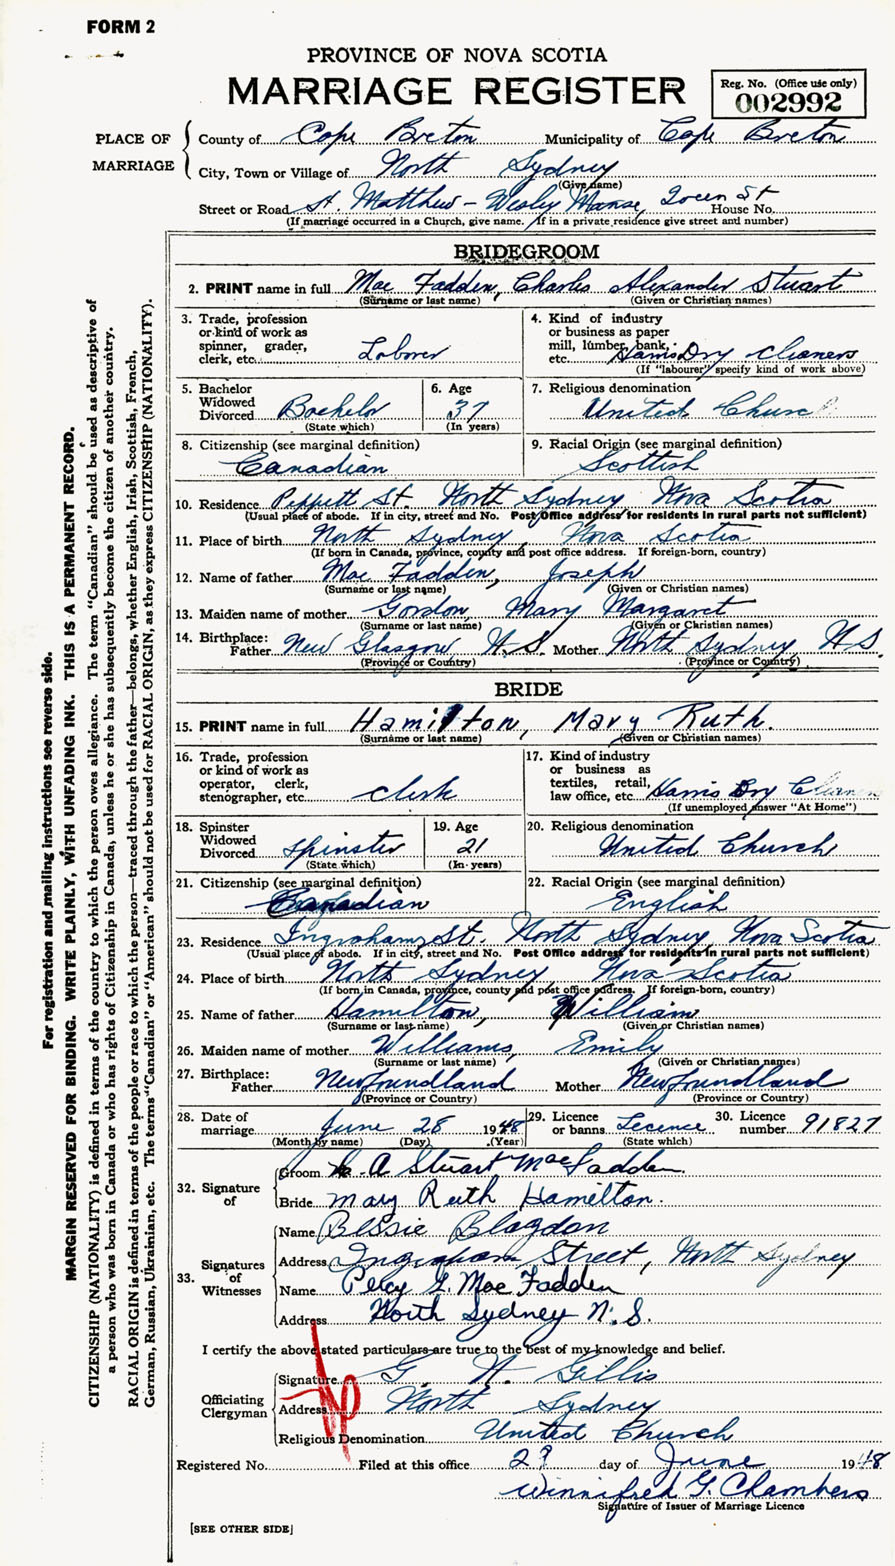 FORM 2
PROVINCE OF NOVA SCOTIA
MARRIAGE REGISTER
Reg. No. (Office use only)
002992
PLACE OF MARRIAGE
County of Cape Breton Municipality of Cape Breton
City, Town or Village of North Sydney
(Give name)
Street or Road St. Matthew - Wesley Manse, Queen St House No.
(If marriage occurred in a Church, give name. If in a private residence give street and number)
BRIDEGROOM
2. PRINT name in full Mac Fadden, Charles Alexander Stuart
(Surname or last name) (Given or Christian names)
3. Trade, profession or kind of work as spinner, grader, clerk, etc. Laborer
4. Kind of industry or business as paper mill, lumber, bank, etc. Dry Cleaners
(If "labourer" specify kind of work above)
5. Bachelor Widowed Divorced Bachelor
(State which)
6. Age 37
(In years)
7. Religious denomination United Church
8. Citizenship (see marginal definition) Canadian
9. Racial Origin (see marginal definition) Scottish
10. Residence Peppett St. North Sydney Nova Scotia
(Usual place of abode. If in city, street and No. Post Office address for residents in rural parts not sufficient)
11. Place of birth North Sydney, Nova Scotia
(If born in Canada, province, county and post office address. If foreign-born, country)
12. Name of father Mac Fadden, Joseph
(Surname or last name) (Given or Christian names)
13. Maiden name of mother Gordon, Mary Margaret
(Surname or last name) (Given or Christian names)
14. Birthplace: Father New Glasgow N.S. Mother North Sydney N.S.
(Province or Country) (Province or Country)
BRIDE
15. PRINT name in full Hamilton, Mary Ruth.
(Surname or last name) (Given or Christian names)
16. Trade, profession or kind of work as operator, clerk, stenographer, etc. Clerk
17. Kind of industry or business as textiles, retail, law office, etc. Harris Dry Cleaners
(If unemployed answer "At Home")
18. Spinster Widowed Divorced Spinster
(State which)
19. Age 21
(In years)
20. Religious denomination United Church
21. Citizenship (see marginal definition) Canadian
22. Racial Origin (see marginal definition) English
23. Residence Ingraham St. North Sydney Nova Scotia
(Usual place of abode. If in city, street and No. Post Office address for residents in rural parts not sufficient)
24. Place of birth North Sydney, Nova Scotia
(If born in Canada, province, county and post office address. If foreign-born, country)
25. Name of father Hamilton, William
(Surname or last name) (Given or Christian names)
26. Maiden name of mother Williams, Emily
(Surname or last name) (Given or Christian names)
27. Birthplace: Father Newfoundland Mother Newfoundland
(Province or Country) (Province or Country)
28. Date of marriage June 28 1948
(Month by name) (Day) (Year)
29. Licence or banns Lecence
(State which)
30. Licence number 91827
32. Signature of
Groom A Stuart MacFadden.
Bride Mary Ruth Hamilton.
33. Signatures of Witnesses
Name Bessie Blagdon
Address Ingraham Street, North Sydney
Name Percy G. MacFadden
Address North Sydney N.S.
I certify the above stated particulars are true to the best of my knowledge and belief.
Officiating Clergyman
Signature G. N. Gillis
Address North Sydney
Religious Denomination United Church
Registered No. Filed at this office day of June 1948
Winnifred G. Chambers
Signature of Issuer of Marriage Licence
[SEE OTHER SIDE]
For registration and mailing instructions see reverse side.
MARGIN RESERVED FOR BINDING. WRITE PLAINLY, WITH UNFADING INK. THIS IS A PERMANENT RECORD.
CITIZENSHIP (NATIONALITY) is defined in terms of the country to which the person owes allegiance. The term "Canadian" should be used as descriptive of
a person who was born in Canada or who has rights of Citizenship in Canada, unless he or she has subsequently become the citizen of another country.
RACIAL ORIGIN is defined in terms of the people or race to which the person—traced through the father—belongs, whether English, Irish, Scottish, French,
German, Russian, Ukrainian, etc. The terms "Canadian" or "American" should not be used for RACIAL ORIGIN, as they express CITIZENSHIP (NATIONALITY).